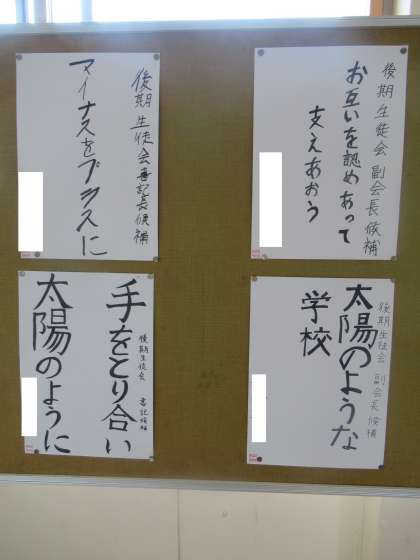 後期生徒会書記長候補
マイナスをプラスに
後期生徒会副会長候補
お互いを認めあって
支えあおう
手をとり合い
後期生徒会 書記候補
太陽のように
後期生徒会 副会長候補
太陽のような
学校